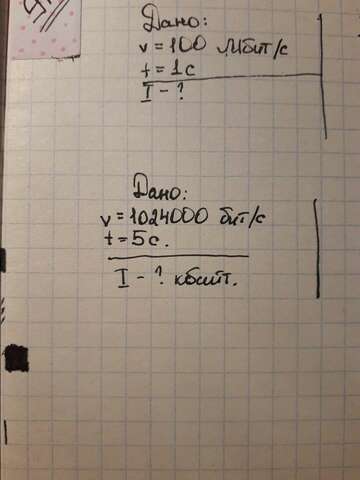 Дано:
v = 100 Мбит/с
t = 1с
I - ?
Дано:
v = 1024000 бит/с
t = 5с.
I - ? кбайт.